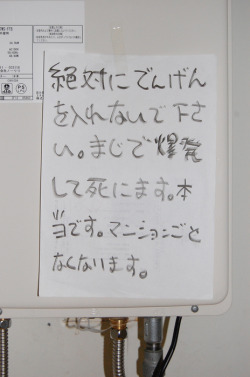 絶対にでんげん
を入れないで下さ
い。まじで爆発
して死にます。本
当です。マンションごと
なくなります。